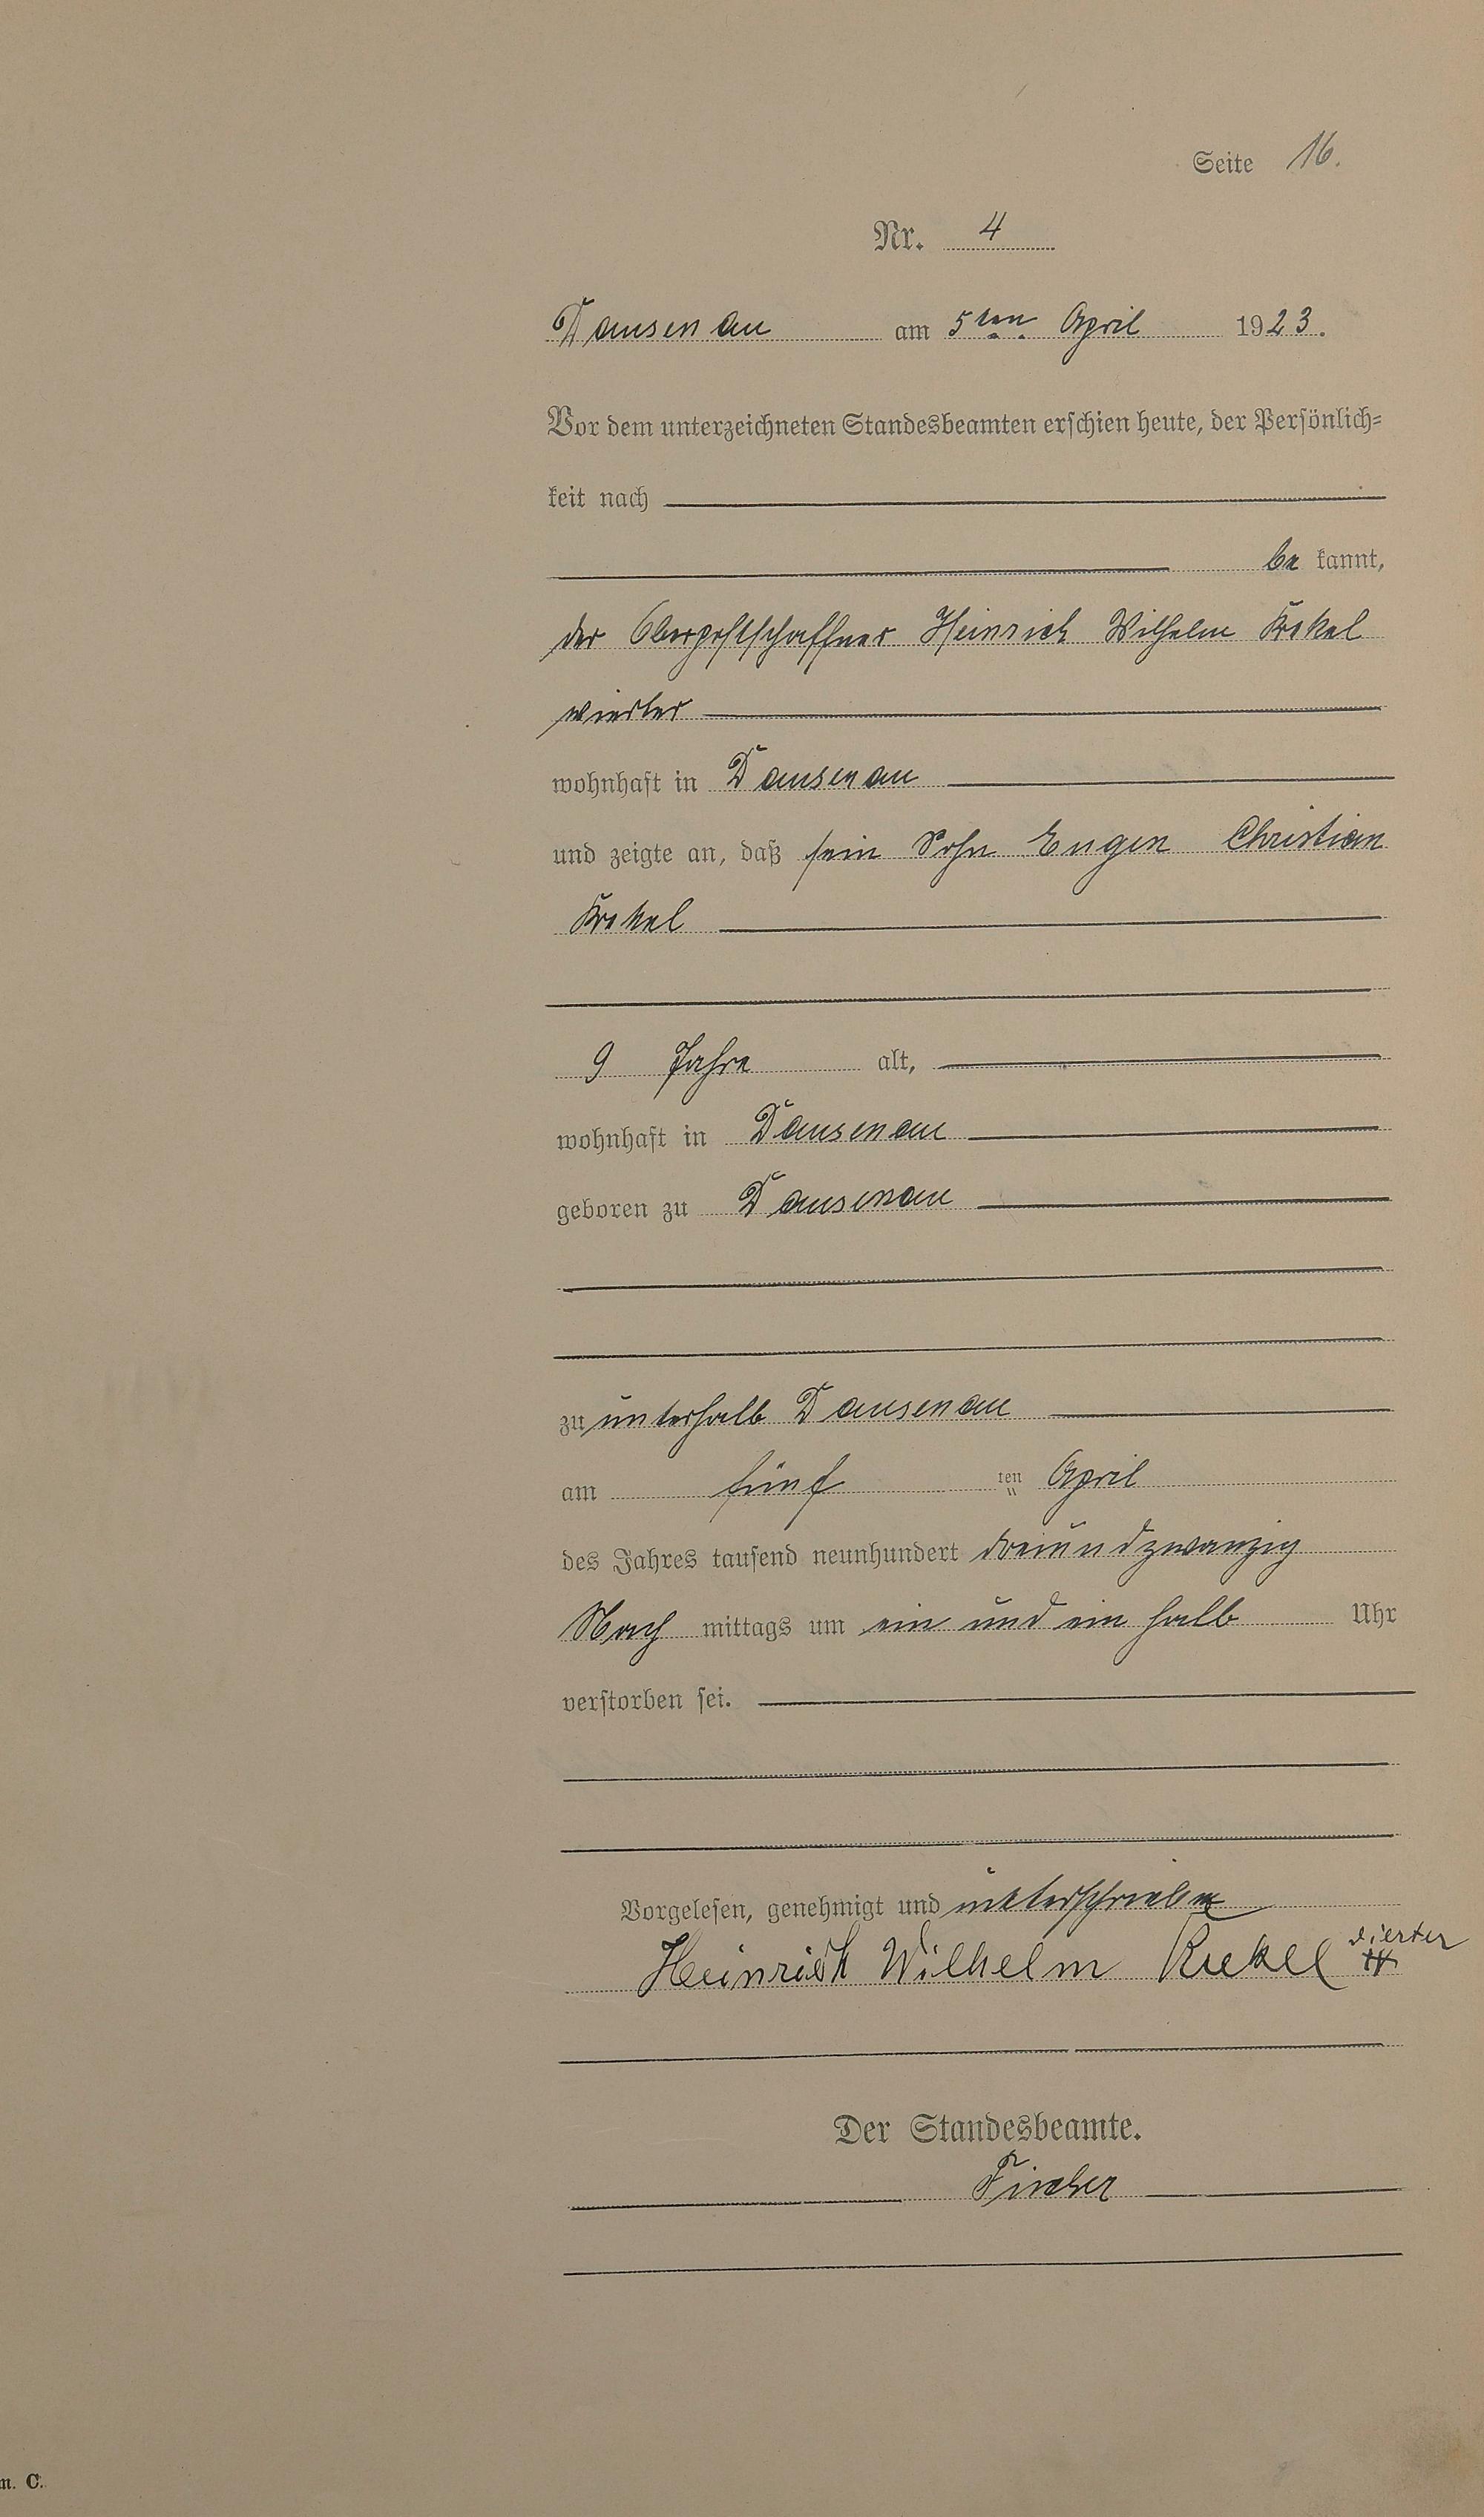 Seite 16.
Nr. 4
Dausenau am 5ten April 1923.
Vor dem unterzeichneten Standesbeamten erschien heute, der Persönlich-
keit nach
be kannt,
der Oberpostschaffner Heinrich Wilhelm Krekel
vierter
wohnhaft in Dausenau
und zeigte an, daß sein Sohn Eugen Christian
Krekel
9 Jahre alt,
wohnhaft in Dausenau
geboren zu Dausenau
zu unterhalb Dausenau
am fünf ten April
des Jahres tausend neunhundert dreiundzwanzig
Nach mittags um ein und ein halb Uhr
verstorben sei.
Vorgelesen, genehmigt und unterschrieben
Heinrich Wilhelm Krekel vierter
Der Standesbeamte.
m. C.